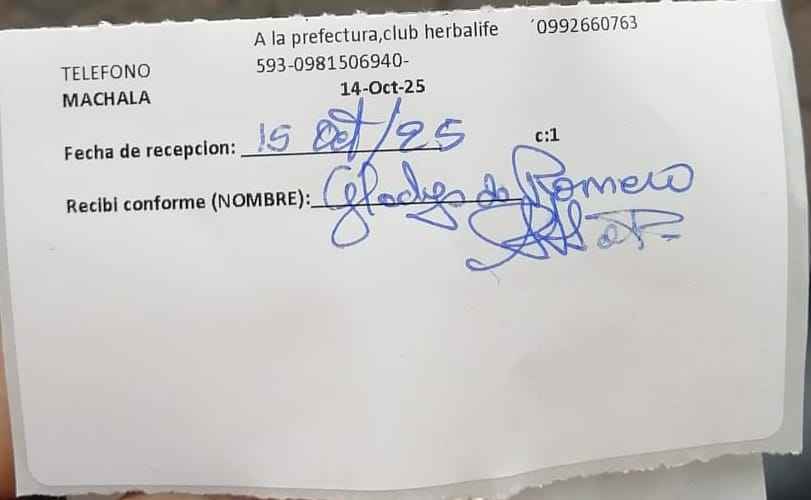 A la prefectura,club herbalife ´0992660763
TELEFONO 593-0981506940-
MACHALA 14-Oct-25
Fecha de recepcion: 15 Oct/25 c:1
Recibi conforme (NOMBRE): Gladys de Romero